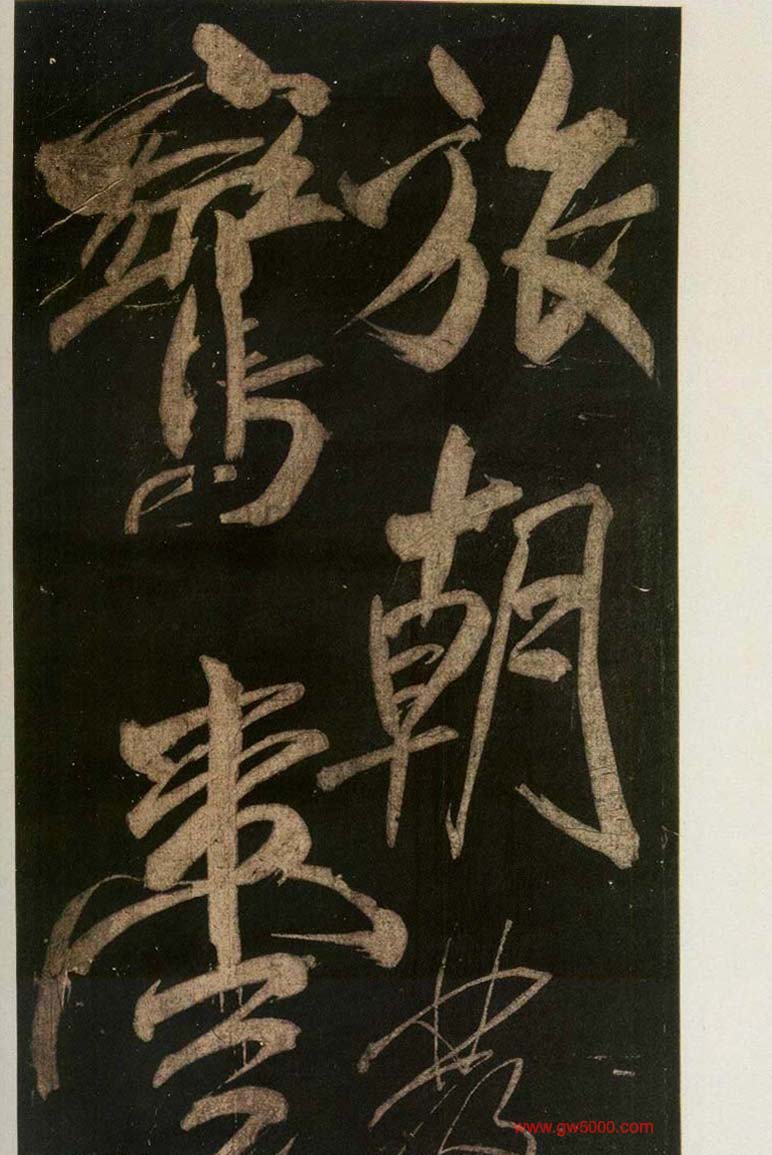 旅朝
鸞臺
www.gw5000.com